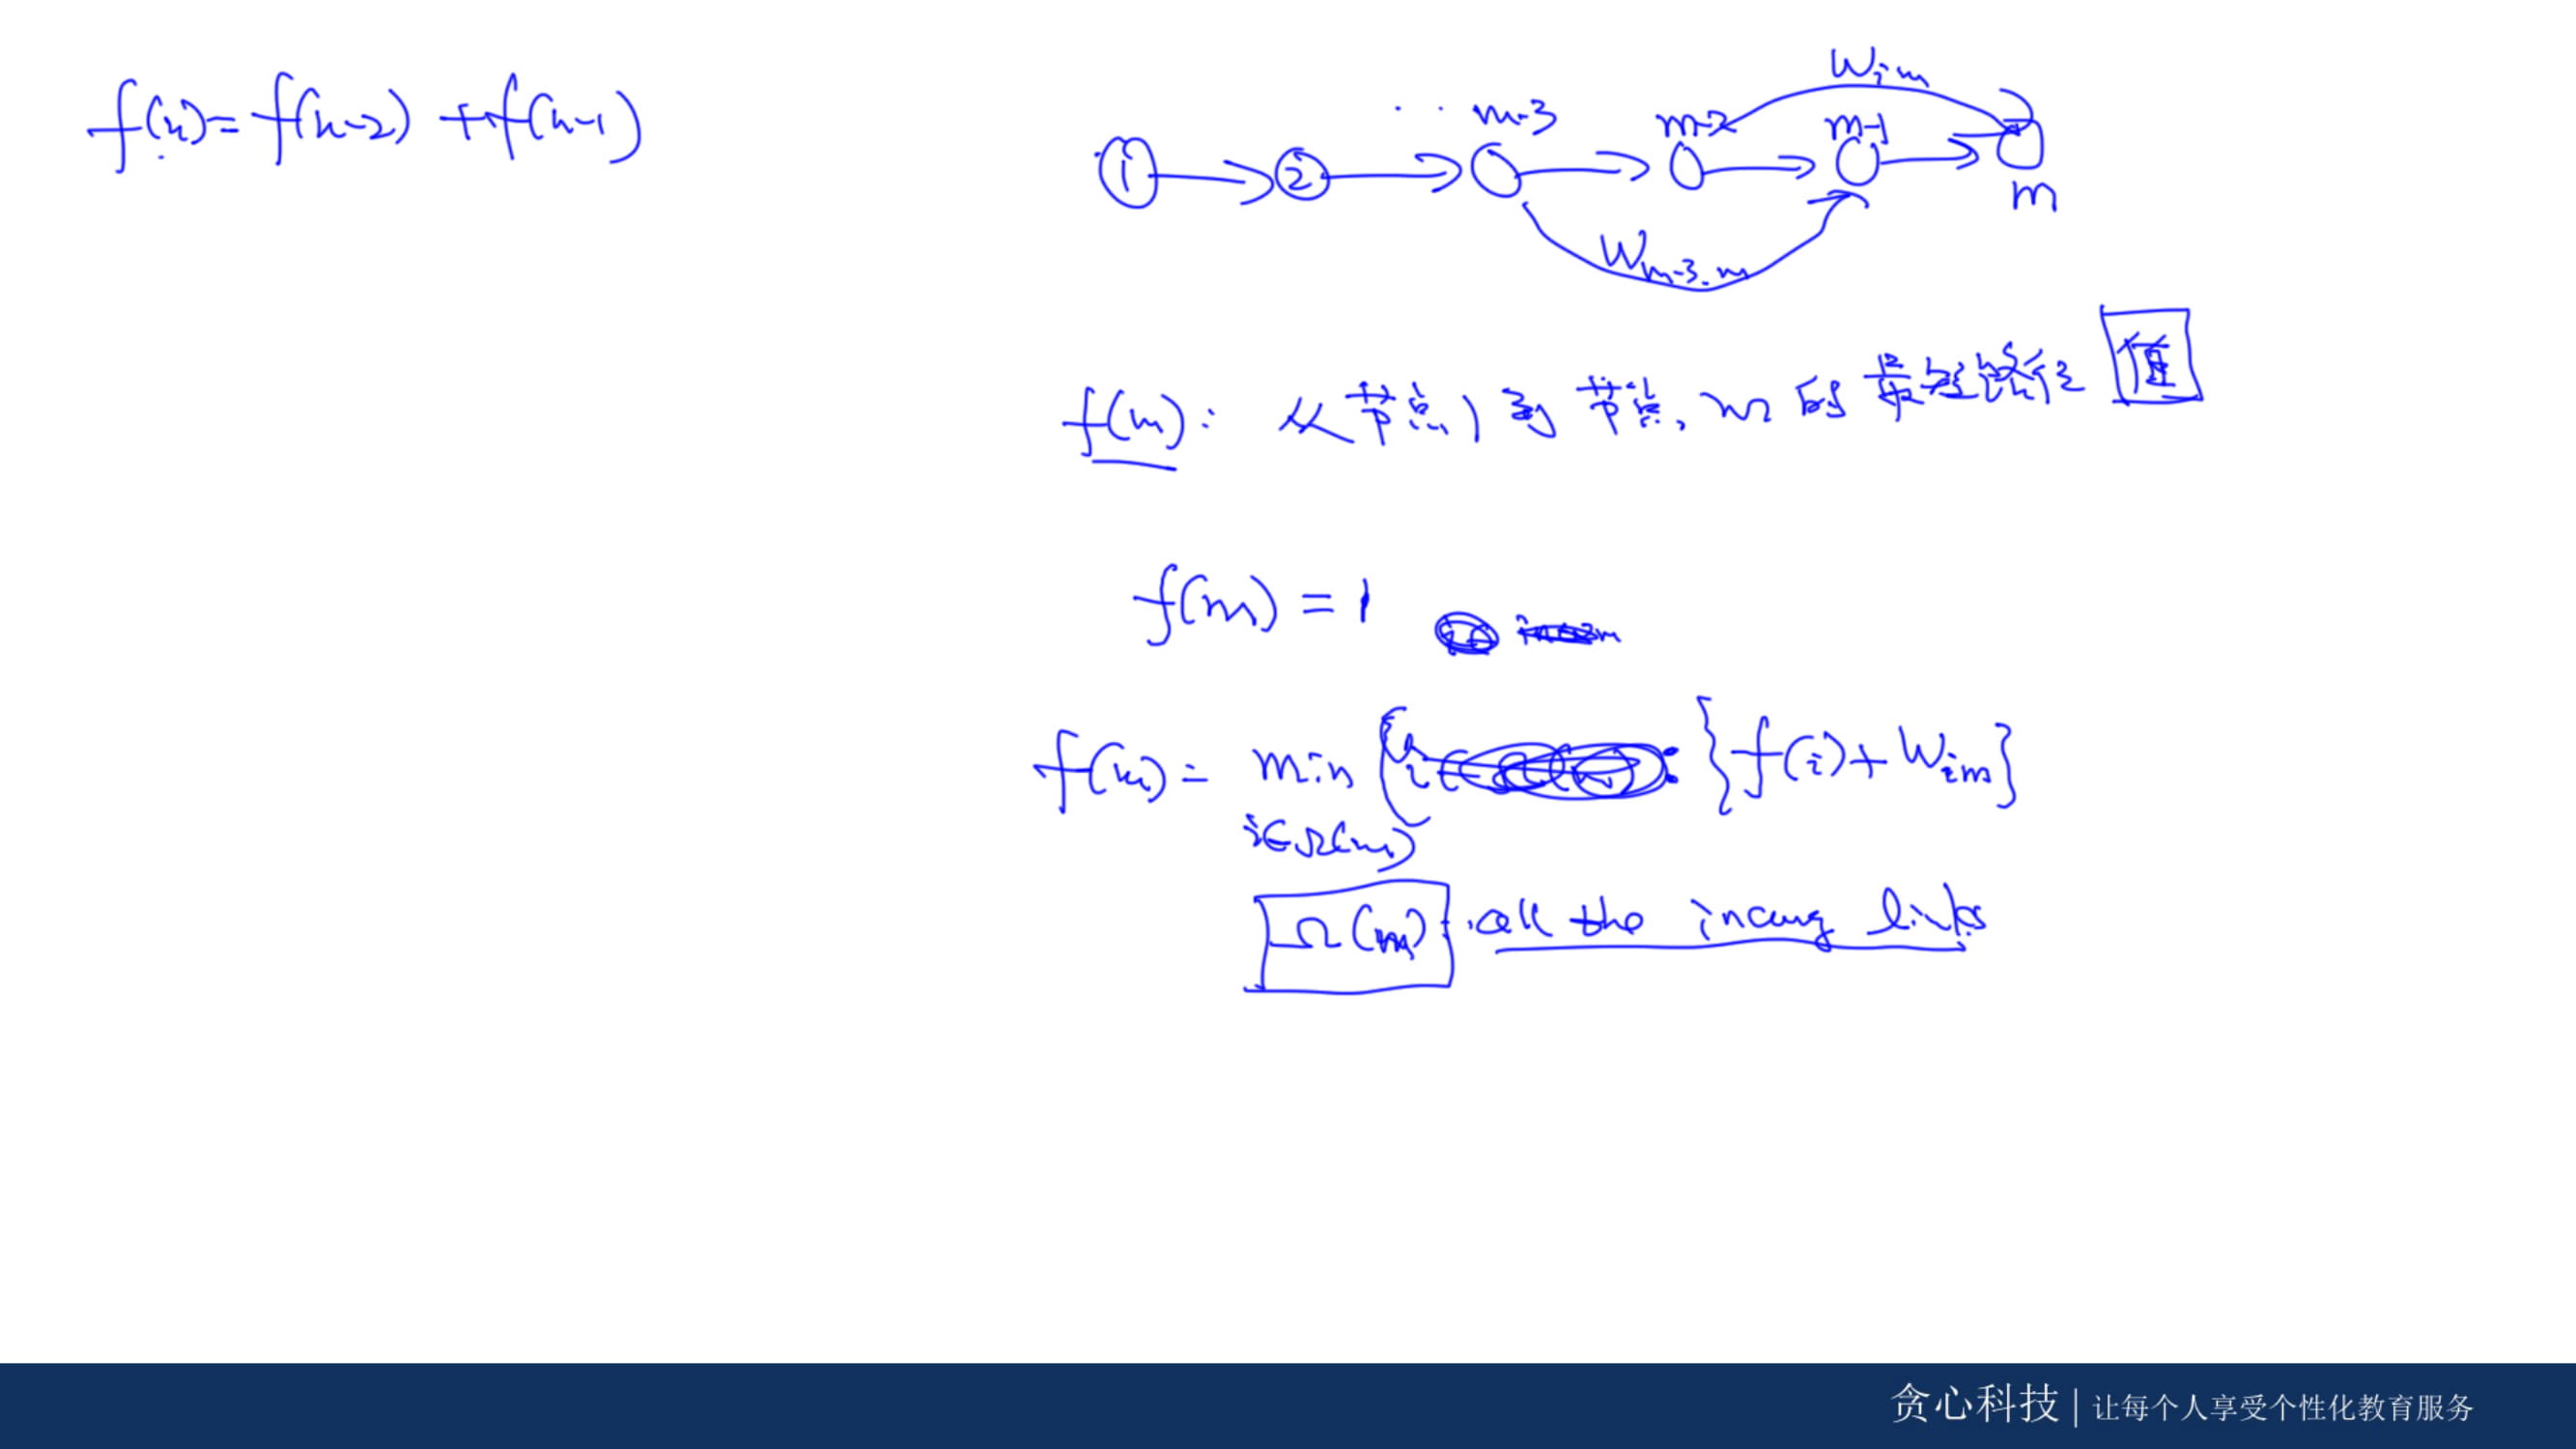 f(n)= f(n-2) + f(n-1)
Wim
·· m-3 m-2 m-1
① ② m
Wm-3.m
f(m): 从节点1到节点m的最短路径值
f(m) = 1
f(m) = min { f(i)+Wim}
i∈Ω(m)
Ω(m): all the incoming links
贪心科技 | 让每个人享受个性化教育服务